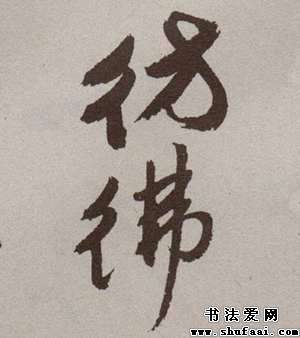 彷彿
书法爱网
www.shufaai.com